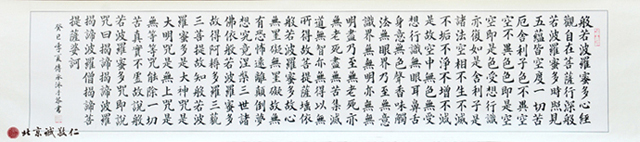 般若波羅蜜多心經
觀自在菩薩行深般
若波羅蜜多時照見
五蘊皆空度一切苦
厄舍利子色不異空
空不異色色即是空
空即是色受想行識
亦復如是舍利子是
諸法空相不生不滅
不垢不淨不增不減
是故空中無色無受
想行識無眼耳鼻舌
身意無色聲香味觸
法無眼界乃至無意
識界無無明亦無無
明盡乃至無老死亦
無老死盡無苦集滅
道無智亦無得以無
所得故菩提薩埵依
般若波羅蜜多故心
無罣礙無罣礙故無
有恐怖遠離顛倒夢
想究竟涅槃三世諸
佛依般若波羅蜜多
故得阿耨多羅三藐
三菩提故知般若波
羅蜜多是大神咒是
大明咒是無上咒是
無等等咒能除一切
苦真實不虛故說般
若波羅蜜多咒即說
咒曰揭諦揭諦波羅
揭諦波羅僧揭諦菩
提薩婆訶
癸巳季夏
北京誠敬仁